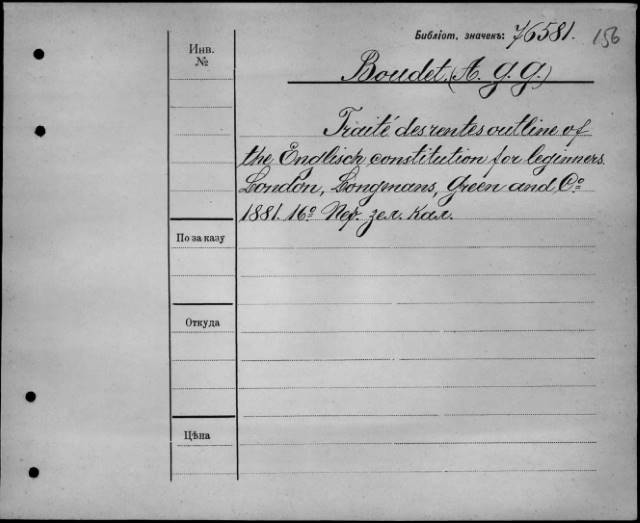 Библіот. значекъ: 7/6581. 156
Инв.
№
Boudet. (A. G. G.)
Traité des rentes outline of
the Englisch constitution for beginners.
London, Longmans, Green and Cº
1881. 16º Пер. зел. кал.
По заказу
Откуда
Цѣна